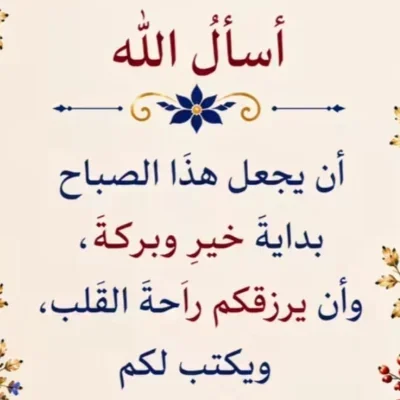 أسألُ الله
أن يجعل هذَا الصباح
بدايةَ خيرِ وبركةَ،
وأن يرزقكم راَحةَ القَلب،
ويكتب لكم